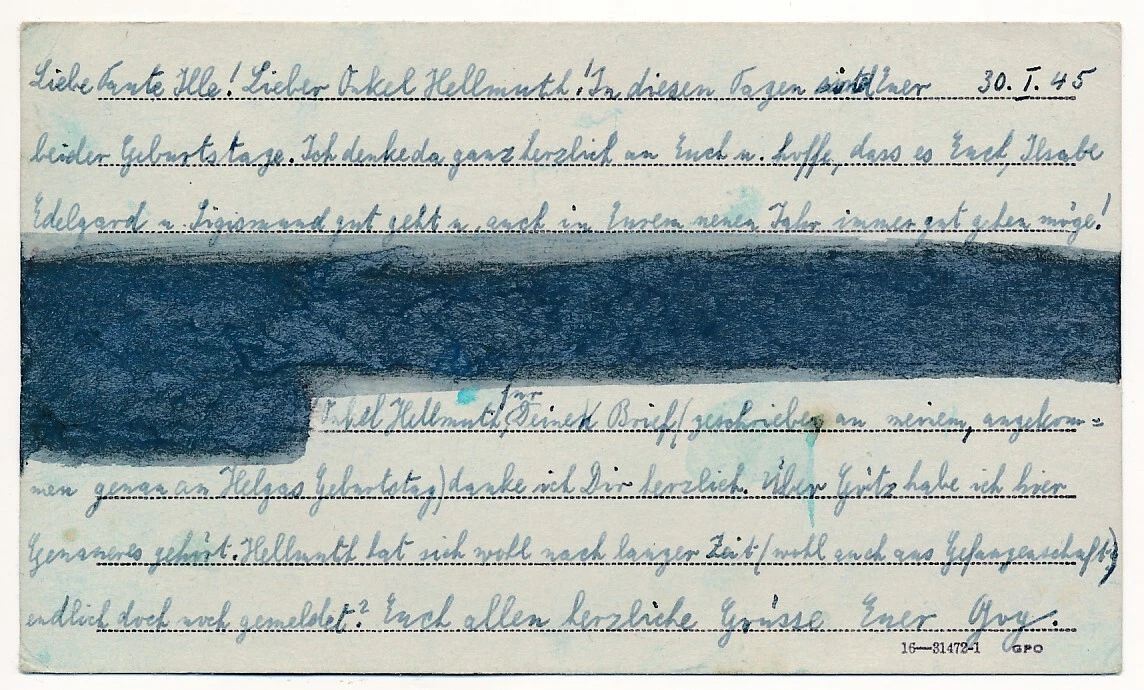 Liebe Tante Ille! Lieber Onkel Hellmuth! In diesen Tagen sind Euer 30. I. 45
beider Geburtstage. Ich denke da ganz herzlich an Euch u. hoffe, dass es Euch, Ilsabe
Edelgard u. Sigismund gut geht u. auch in Eurem neuen Jahr immer gut gehen möge!
Onkel Hellmuth, für Deinen Brief (geschrieben an meinem, angekom=
men genau an Helgas Geburtstag) danke ich Dir herzlich. Über Götz habe ich hier
Genaueres gehört. Hellmuth hat sich wohl nach langer Zeit (wohl auch aus Gefangenschaft)
endlich doch noch gemeldet? Euch allen herzliche Grüsse Euer
16—31472-1 GPO